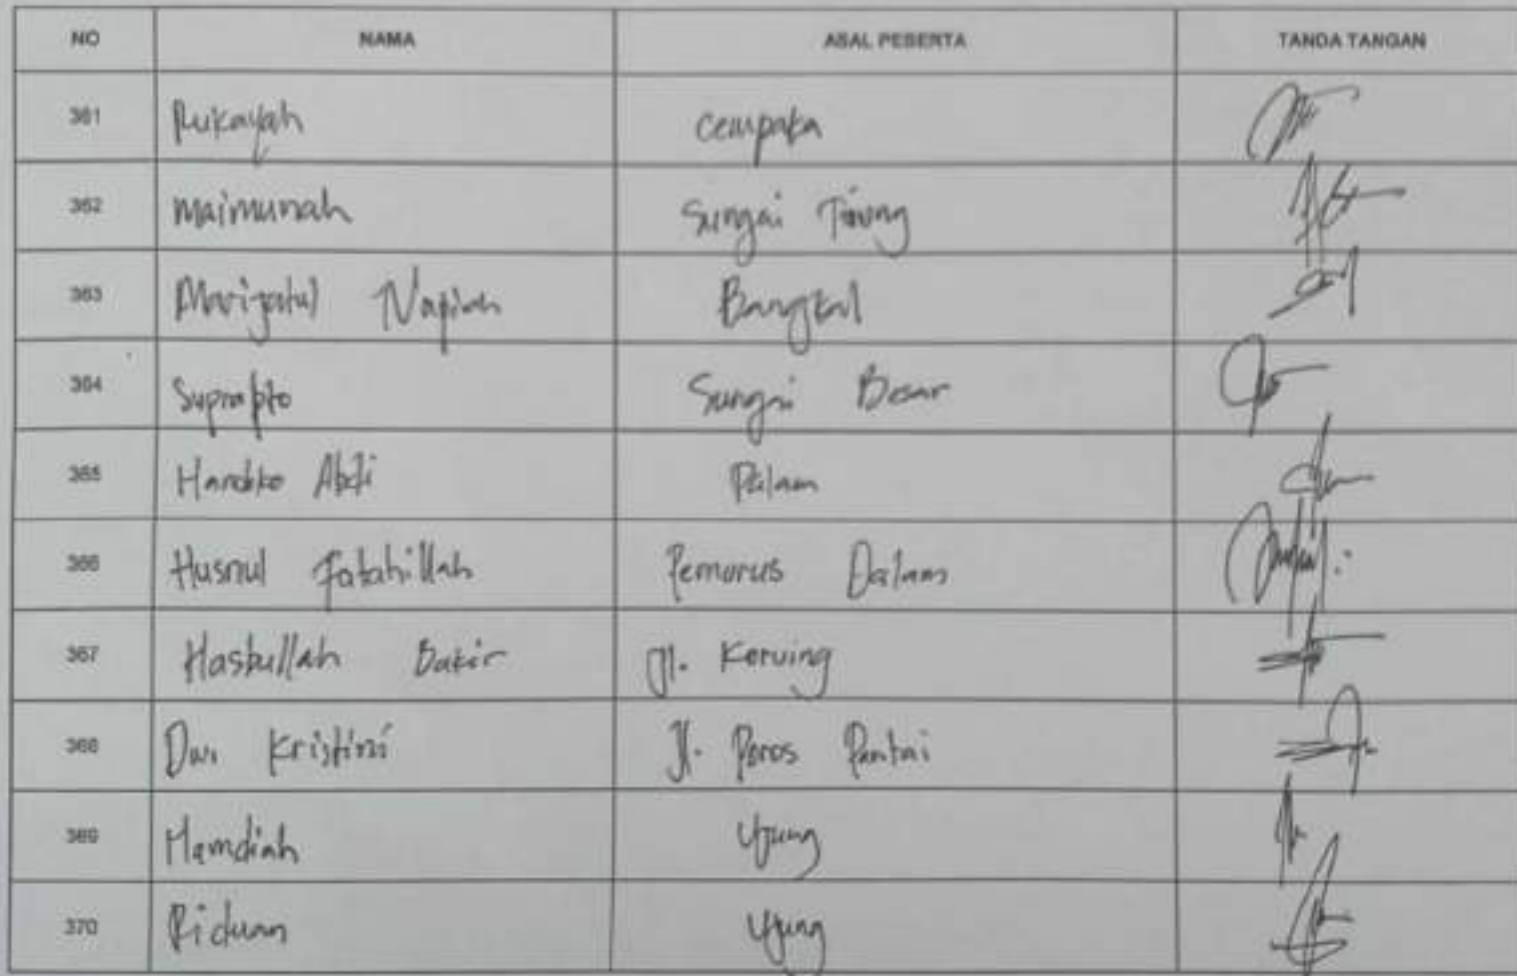 NO NAMA ASAL PESERTA TANDA TANGAN
361 Rukayah Cempaka
362 Maimunah Sungai Tiung
363 Mariyatul Napiah Bangkal
364 Suprapto Sungai Besar
365 Handko Abdi Palam
366 Husnul Fatahillah Pemurus Dalam
367 Hasbullah Bakir Jl. Keruing
368 Dwi Kristini Jl. Poros Pantai
369 Hamdiah Ujung
370 Riduan Ujung